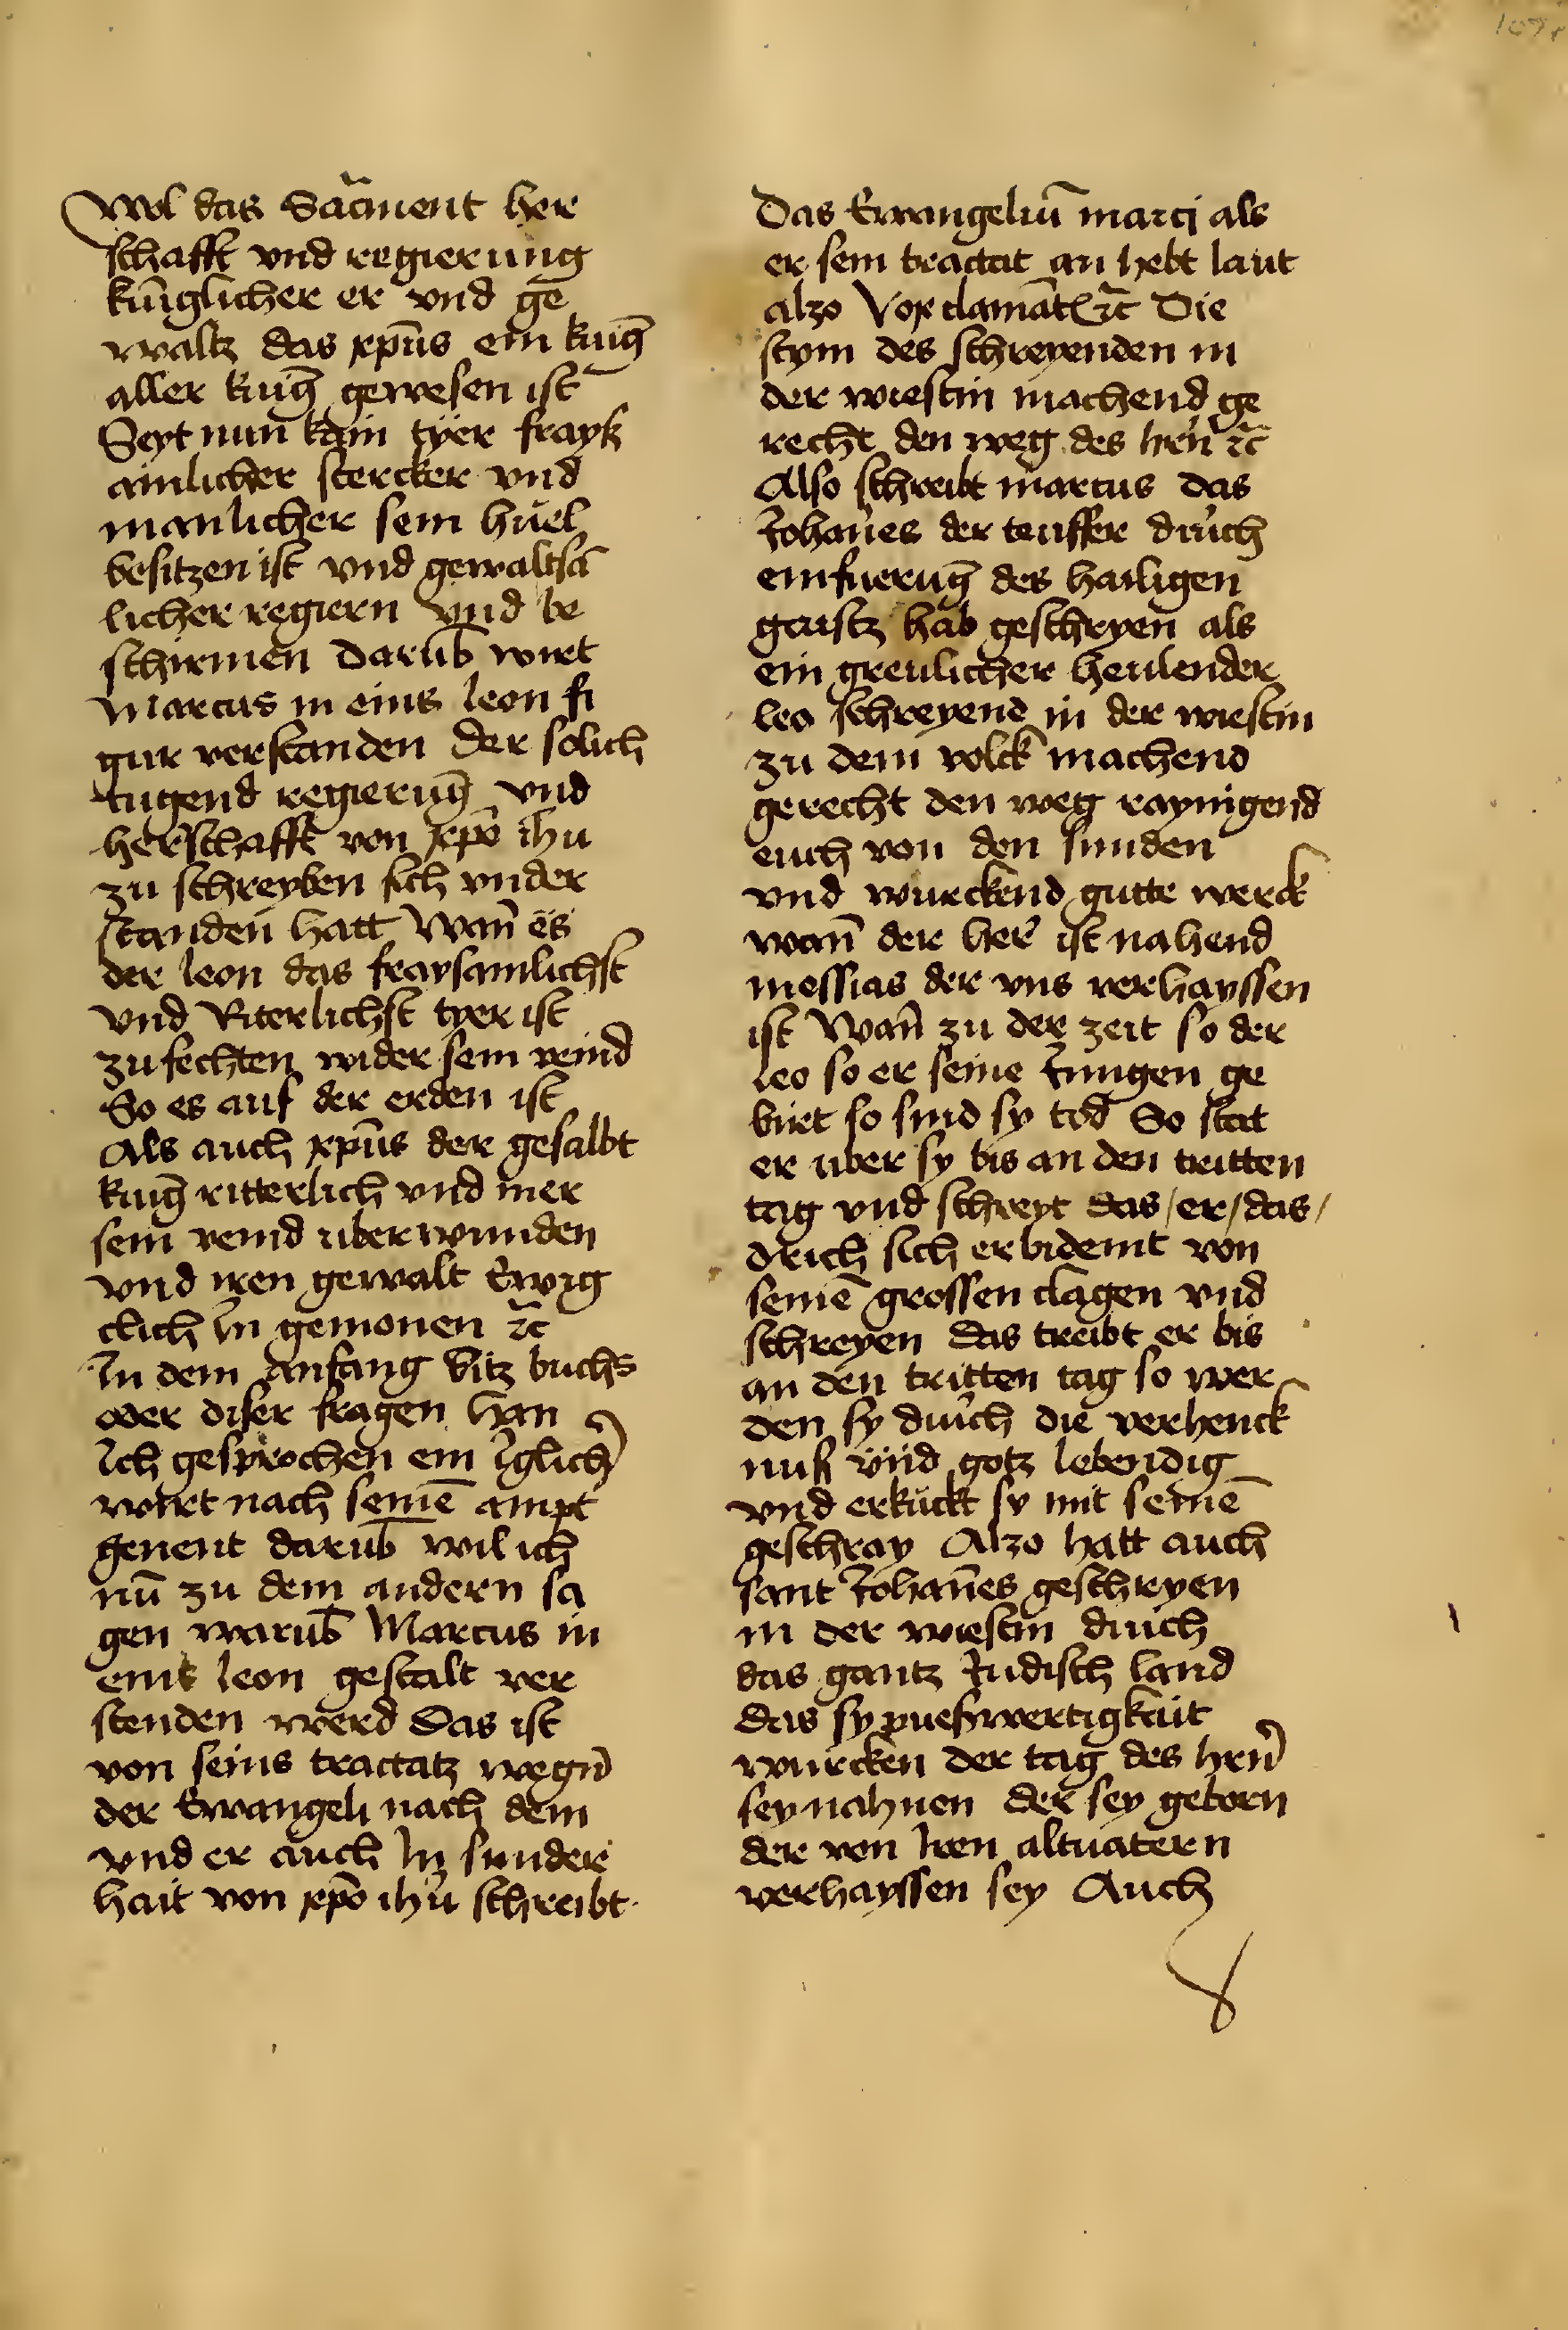 107r
Wol das Sac̄ment her
schafft vnd regierung
kūnglicher er vnd ge
waltz das xp̄us ein kunḡ
aller kunḡ gewesen ist
Seyt nun kain tÿer frayß
amlicher stercker vnd
manlicher sein huͤel
besitzen ist vnd gewaltsā
licher regiern vnd be
schirmen Darub̄ wirt
Marcus in eins leon fi
gur verstanden Der solich
tugend regierunḡ vnd
herschafft von xp̄o ihu
zu schreyben sich vnder
standen hatt Wan̄ es
der leon das fraysamlichst
vnd Riterlichst tyer ist
zu fechten wider sein veind
So es auf der erden ist
Als auch xp̄us der gesalbt
kunḡ ritterlich vnd mer
sein veind uberwunden
vnd iren gewalt Ewig
clich In genionen ꝛc̄
In dem Anfang ditz buchs
oder diser fragen han
Ich gesprochen ein Iglich̄
wirt nach seinē ampt
genent darub̄ wil ich
nū zu dem andern sa
gen warub̄ Marcus in
eins leon gestalt ver
stenden werd Das ist
von seins tractatz wegn̄
der Ewangeli nach dem
vnd er auch In sunder
hait von xp̄o ihu schreibt
Das Ewangeliū marcj als
er sein tractat an hebt laut
alzo Vox clamāt ꝛc̄ Die
stym des schreyenden in
der wiestin machend ge
recht den weg des hrn̄ ꝛc̄
Also schreibt marcus das
Johan̄es der teuffer durch
einfuerunḡ des hailigen
gaistz hab geschryen als
ein greulicher heulender
leo schreyend in der wiestin
zu dem volck machend
gerecht den weg raynigend
euch von den sunden
vnd wurckend gutte werck
wan̄ der her̄ ist nahend
messias der vns verhayssen
ist Wan̄ zu der zeit so der
leo so er seine Jungen ge
birt so sind sy tod So stat
er uber sy bis an den tritten
tag vnd schreyt das/er/das/
drich sich erbidemt von
seinē grossen clagen vnd
schreyen das treibt er bis
an den tritten tag so wer
den sy durch die verhenck
nuß vnd gotz lebendig
vnd erkückt sy mit seinē
geschray Alzo hatt auch
sant Johan̄es geschryen
in der wiestin durch
das gantz Judisch land
das sy pueßwertigkait
wurcken der tag des hrn̄
sey nahnen der sey geborn
der von Iren altuatern
verhayssen sey Auch